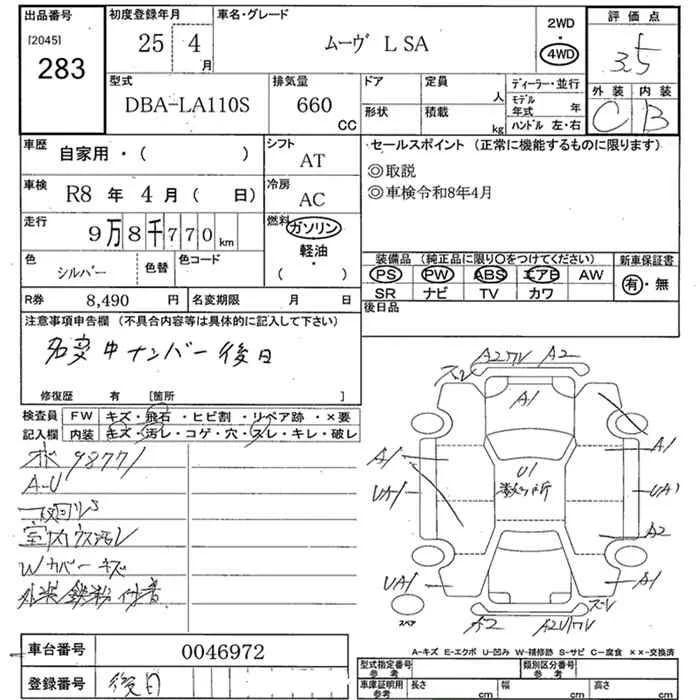 出品番号 初度登録年月 車名・グレード 2WD 評価点
[2045] 283 25年 4月 ムーヴ L SA ・ 4WD 3.5
型式 排気量 ドア 定員 ディーラー・並行 外装 内装
DBA-LA110S 660 CC 人 モデル年式 年 C B
形状 積載 kg ハンドル 左・右
車歴 自家用・( ) シフト AT セールスポイント (正常に機能するものに限ります)
◎取説
車検 R8年 4月 ( 日) 冷房 AC ◎車検令和8年4月
走行 9万8千770km 燃料 ガソリン
軽油
・( )
色 シルバー 色替 色コード
装備品 (純正品に限り○をつけてください) 新車保証書
PS PW ABS エアB AW 有・無
SR ナビ TV カワ
R券 8,490 円 名変期限 月 日 後日品
注意事項申告欄 (不具合内容等は具体的に記入して下さい)
名変中ナンバー後日
修復歴 有 [箇所 ]
検査員 FW キズ・飛石・ヒビ割・リペア跡・×要
記入欄 内装 キズ・汚レ・コゲ・穴・スレ・キレ・破レ
98771
A-U
室内ウス汚レ
Wカバーキズ
外装鉄粉付着
スレ A2 A2
A1
A1 A1
U1
数ヶ所
UA1 UA1
A2
UA1 A1
スレ
スペア A2 A2U1
A-キズ E-エクボ U-凹み W-補修跡 S-サビ C-腐食 ××-交換済
車台番号 0046972
型式指定番号 参考 類別区分番号 参考
登録番号 後日
車庫証明用 参考 長さ cm 幅 cm 高さ cm